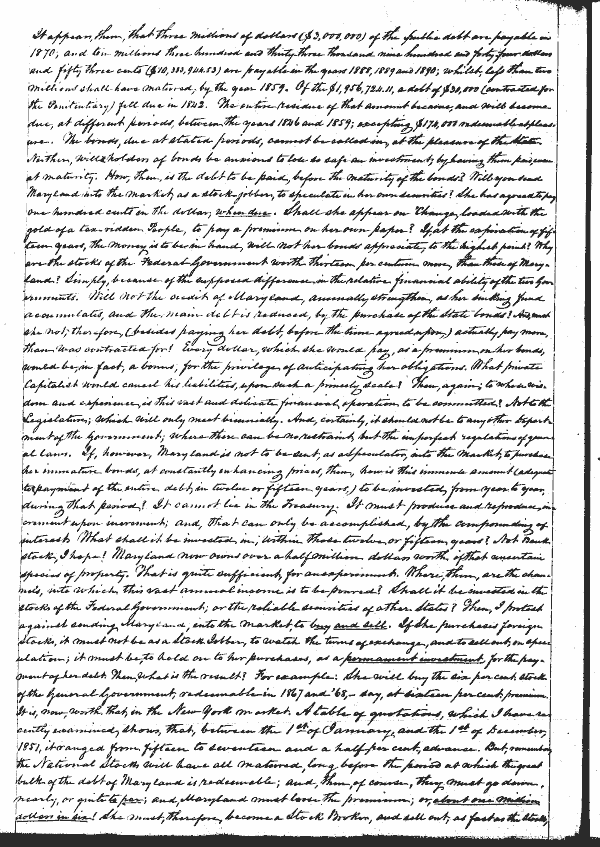 It appears, then, that three millions of dollars ($3,000,000) of the public debt are payable in
1870; and ten millions three hundred and thirty three thousand nine hundred and forty four dollars
and fifty three cents ($10,333,944.53) are payable in the years 1888, 1889 and 1890; whilst, less than two
millions shall have matured, by the year 1859. Of the $1,956,724.11, a debt of $30,000 (contracted for
the Penitentiary) fell due in 1842. The entire residue of that amount became, and will become
due, at different periods, between the years 1846 and 1859; excepting $174,000 redeemable at pleas-
ure. The bonds, due at stated periods, cannot be called in, at the pleasure of the State.
Neither, will holders of bonds be anxious to lose so safe an investment, by having them paid, even
at maturity. How, then, is the debt to be paid, before the maturity of the bonds? Will you send
Maryland into the market, as a stock-jobber, to speculate in her own securities? She has agreed to pay
one hundred cents on the dollar, when due. Shall she appear on 'Change, loaded with the
gold of a tax-ridden People, to pay a premium on her own paper? If, at the expiration of fif-
teen years, the money is to be in hand, will not her bonds appreciate, to the highest point? Why
are the stocks of the Federal Government worth thirteen per centum more, than those of Mary-
land? Simply, because of the supposed difference, in the relative financial ability of the two Gov-
ernments. Will not the credit of Maryland, annually strengthen, as her sinking fund
accumulates, and the main debt is reduced, by the purchase of the State bonds? And, must
she not, therefore, (besides paying her debt, before the time agreed upon,) actually, pay more,
than was contracted for? Every dollar, which she would pay, as a premium, on her bonds,
would be, in fact, a bonus, for the privilege of anticipating her obligations. What private
Capitalist would cancel his liabilities, upon such a princely scale? Then, again; to whose wis-
dom and experience, is this vast and delicate financial, operation to be committed? Not to the
Legislature; which will only meet biennially. And, certainly, it should not be to any other Depart-
ment of the Government; where there can be no restraint, but the imperfect regulations of gener-
al laws. If, however, Maryland is not to be sent, as a speculator, into the market, to purchase
her immature bonds, at constantly enhancing prices, then, how is this immense amount (adequate
to payment of the entire debt, in twelve or fifteen years,) to be invested, from year to year,
during that period? It cannot lie in the Treasury. It must produce and reproduce, in-
crement upon increment; and, that can only be accomplished, by the compounding of
interest. What shall it be invested in, within those twelve, or fifteen years? Not Bank
stock, I hope! Maryland now owns over a half million dollars worth of that uncertain
species of property. That is quite sufficient, for an experiment. Where, then, are the chan-
nels, into which this vast annual income is to be poured? Shall it be invested in the
stocks of the Federal Government; or the reliable securities of other States? Then, I protest
against sending Maryland, into the market, to buy and sell. If she purchases foreign
stocks, it must not be as a Stock Jobber, to watch the turns of exchange, and to sell out, on spec-
ulation; it must be, to hold on to her purchases, as a permanent investment, for the pay-
ment of her debt. Then, what is the result? For example: She will buy the six per cent. stock
of the General Government, redeemable in 1867 and '68 – say, at sixteen per cent, premium.
It is, now, worth, that, in the New York market. A table of quotations, which I have re-
cently examined, shows, that, between the 1st of January, and the 1st of December,
1851, it ranged from fifteen to seventeen and a half per cent, advance. But, remember,
the National Stocks will have all matured, long before the period at which the great
bulk of the debt of Maryland is redeemable; and, then, of course, they must go down,
nearly, or quite to par; and, Maryland must lose the premium; or, about one million
dollars in six! She must, therefore, become a Stock Broker, and sell out, as fast as the stocks,